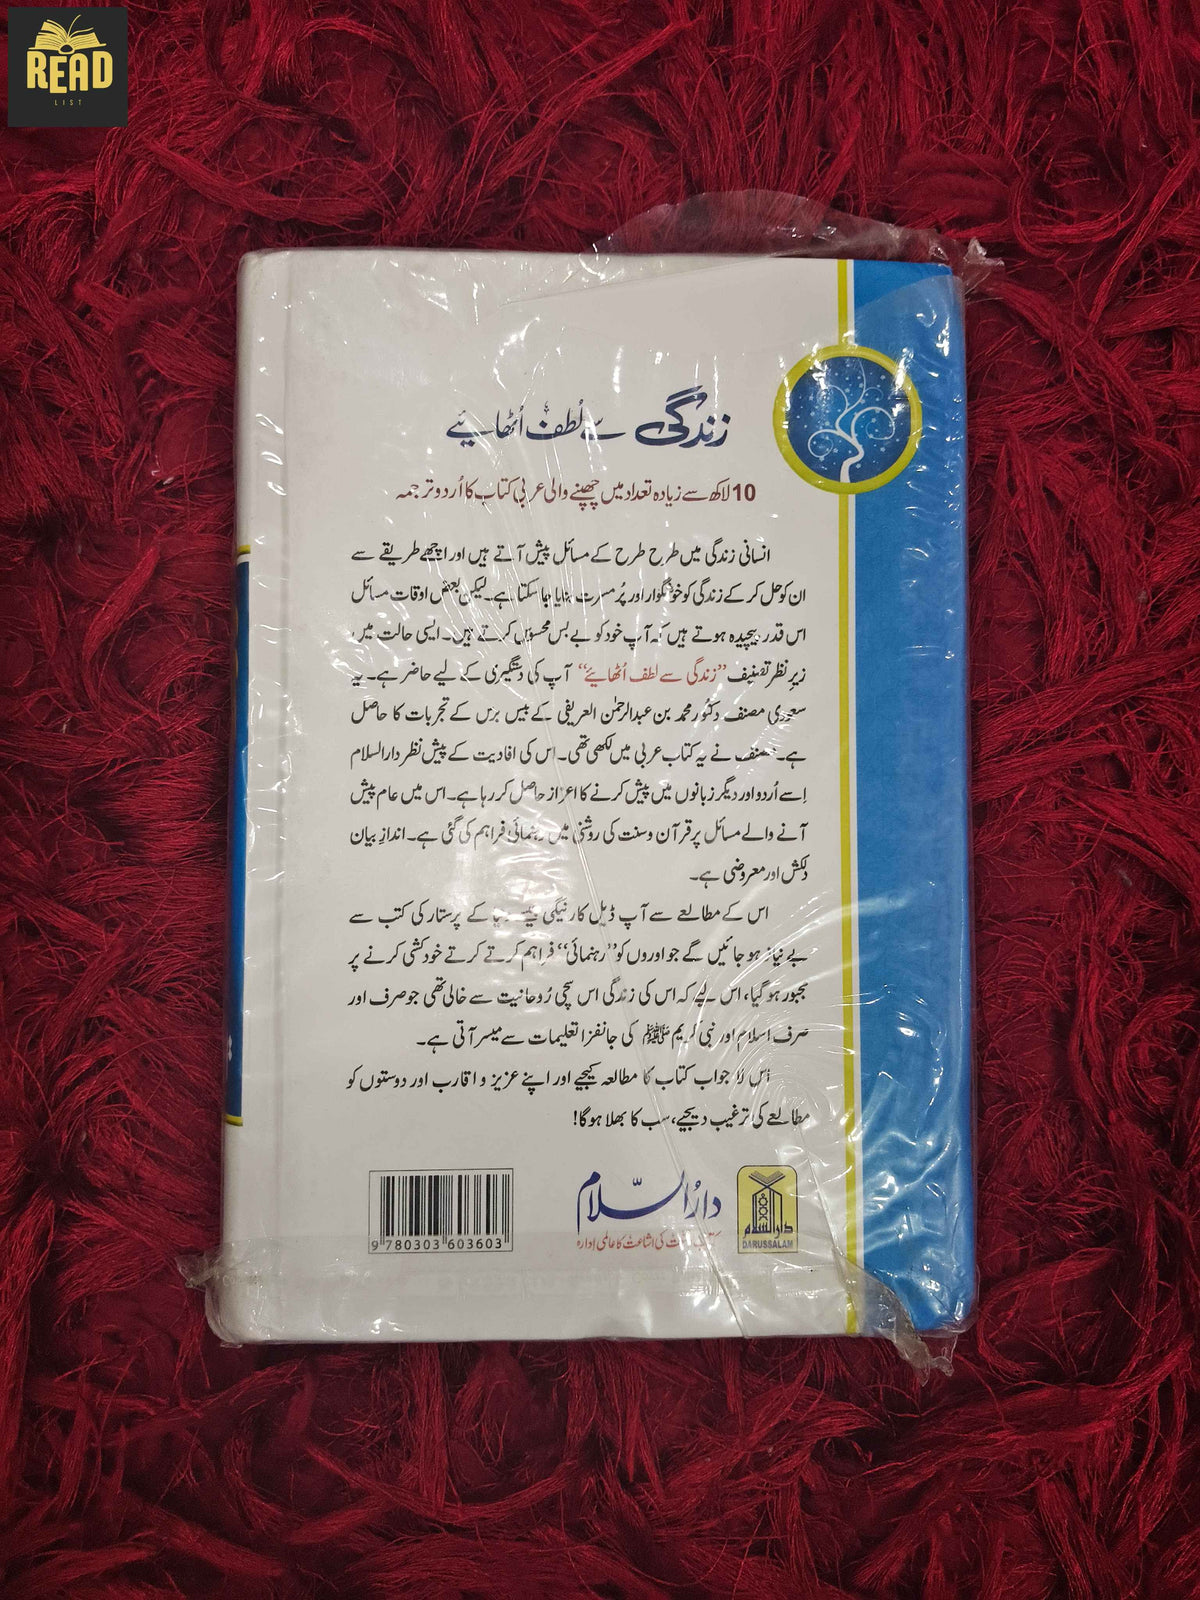 READ
LIST
زندگی سے لُطف اُٹھائیے
10 لاکھ سے زیادہ تعداد میں چھپنے والی عربی کتاب کا اُردو ترجمہ
انسانی زندگی میں طرح طرح کے مسائل پیش آتے ہیں اور اچھے طریقے سے
ان کو حل کر کے زندگی کو خوشگوار اور پُر مسرت بنایا جا سکتا ہے۔ لیکن بعض اوقات مسائل
اس قدر پیچیدہ ہوتے ہیں کہ آپ خود کو بے بس محسوس کرتے ہیں۔ ایسی حالت میں
زیرِ نظر تصنیف ”زندگی سے لطف اُٹھائیے“ آپ کی دستگیری کے لیے حاضر ہے۔ یہ
سعودی مصنف دکتور محمد بن عبدالرحمٰن العریفی کے بیس برس کے تجربات کا حاصل
ہے۔ مصنف نے یہ کتاب عربی میں لکھی تھی۔ اس کی افادیت کے پیش نظر دارالسلام
اِسے اُردو اور دیگر زبانوں میں پیش کرنے کا اعزاز حاصل کر رہا ہے۔ اس میں عام پیش
آنے والے مسائل پر قرآن و سنت کی روشنی میں رہنمائی فراہم کی گئی ہے۔ اندازِ بیان
دلکش اور معروضی ہے۔
اس کے مطالعے سے آپ ڈیل کارنیگی جیسے دنیا کے پرستار کی کتب سے
بے نیاز ہو جائیں گے جو اوروں کو ”رہنمائی“ فراہم کرتے کرتے خودکشی کرنے پر
مجبور ہو گیا، اس لیے کہ اس کی زندگی اس سچی رُوحانیت سے خالی تھی جو صرف اور
صرف اسلام اور نبی کریم ﷺ کی جانفزا تعلیمات سے میسر آتی ہے۔
اس لا جواب کتاب کا مطالعہ کیجیے اور اپنے عزیز و اقارب اور دوستوں کو
مطالعے کی ترغیب دیجیے، سب کا بھلا ہوگا!
دارُالسّلام
کی اشاعت کا عالمی ادارہ
دارالسلام
DARUSSALAM
9 780303 603603